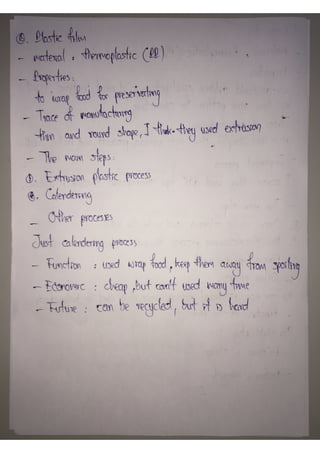 ⑧. Plastic film
- material : thermoplastic (PP)
- Properties :
to wrap food for preservating
- Trace of manufactoring
thin and round shape, I think they used extrusion
- The main steps:
①. Extrusion plastic process
②. Calendering
- Other processes
Just calendering process
- Function : used wrap food, keep them away from spoiling
- Economic : cheap, but can't used many time
- Future : can be recycled, but it is hard